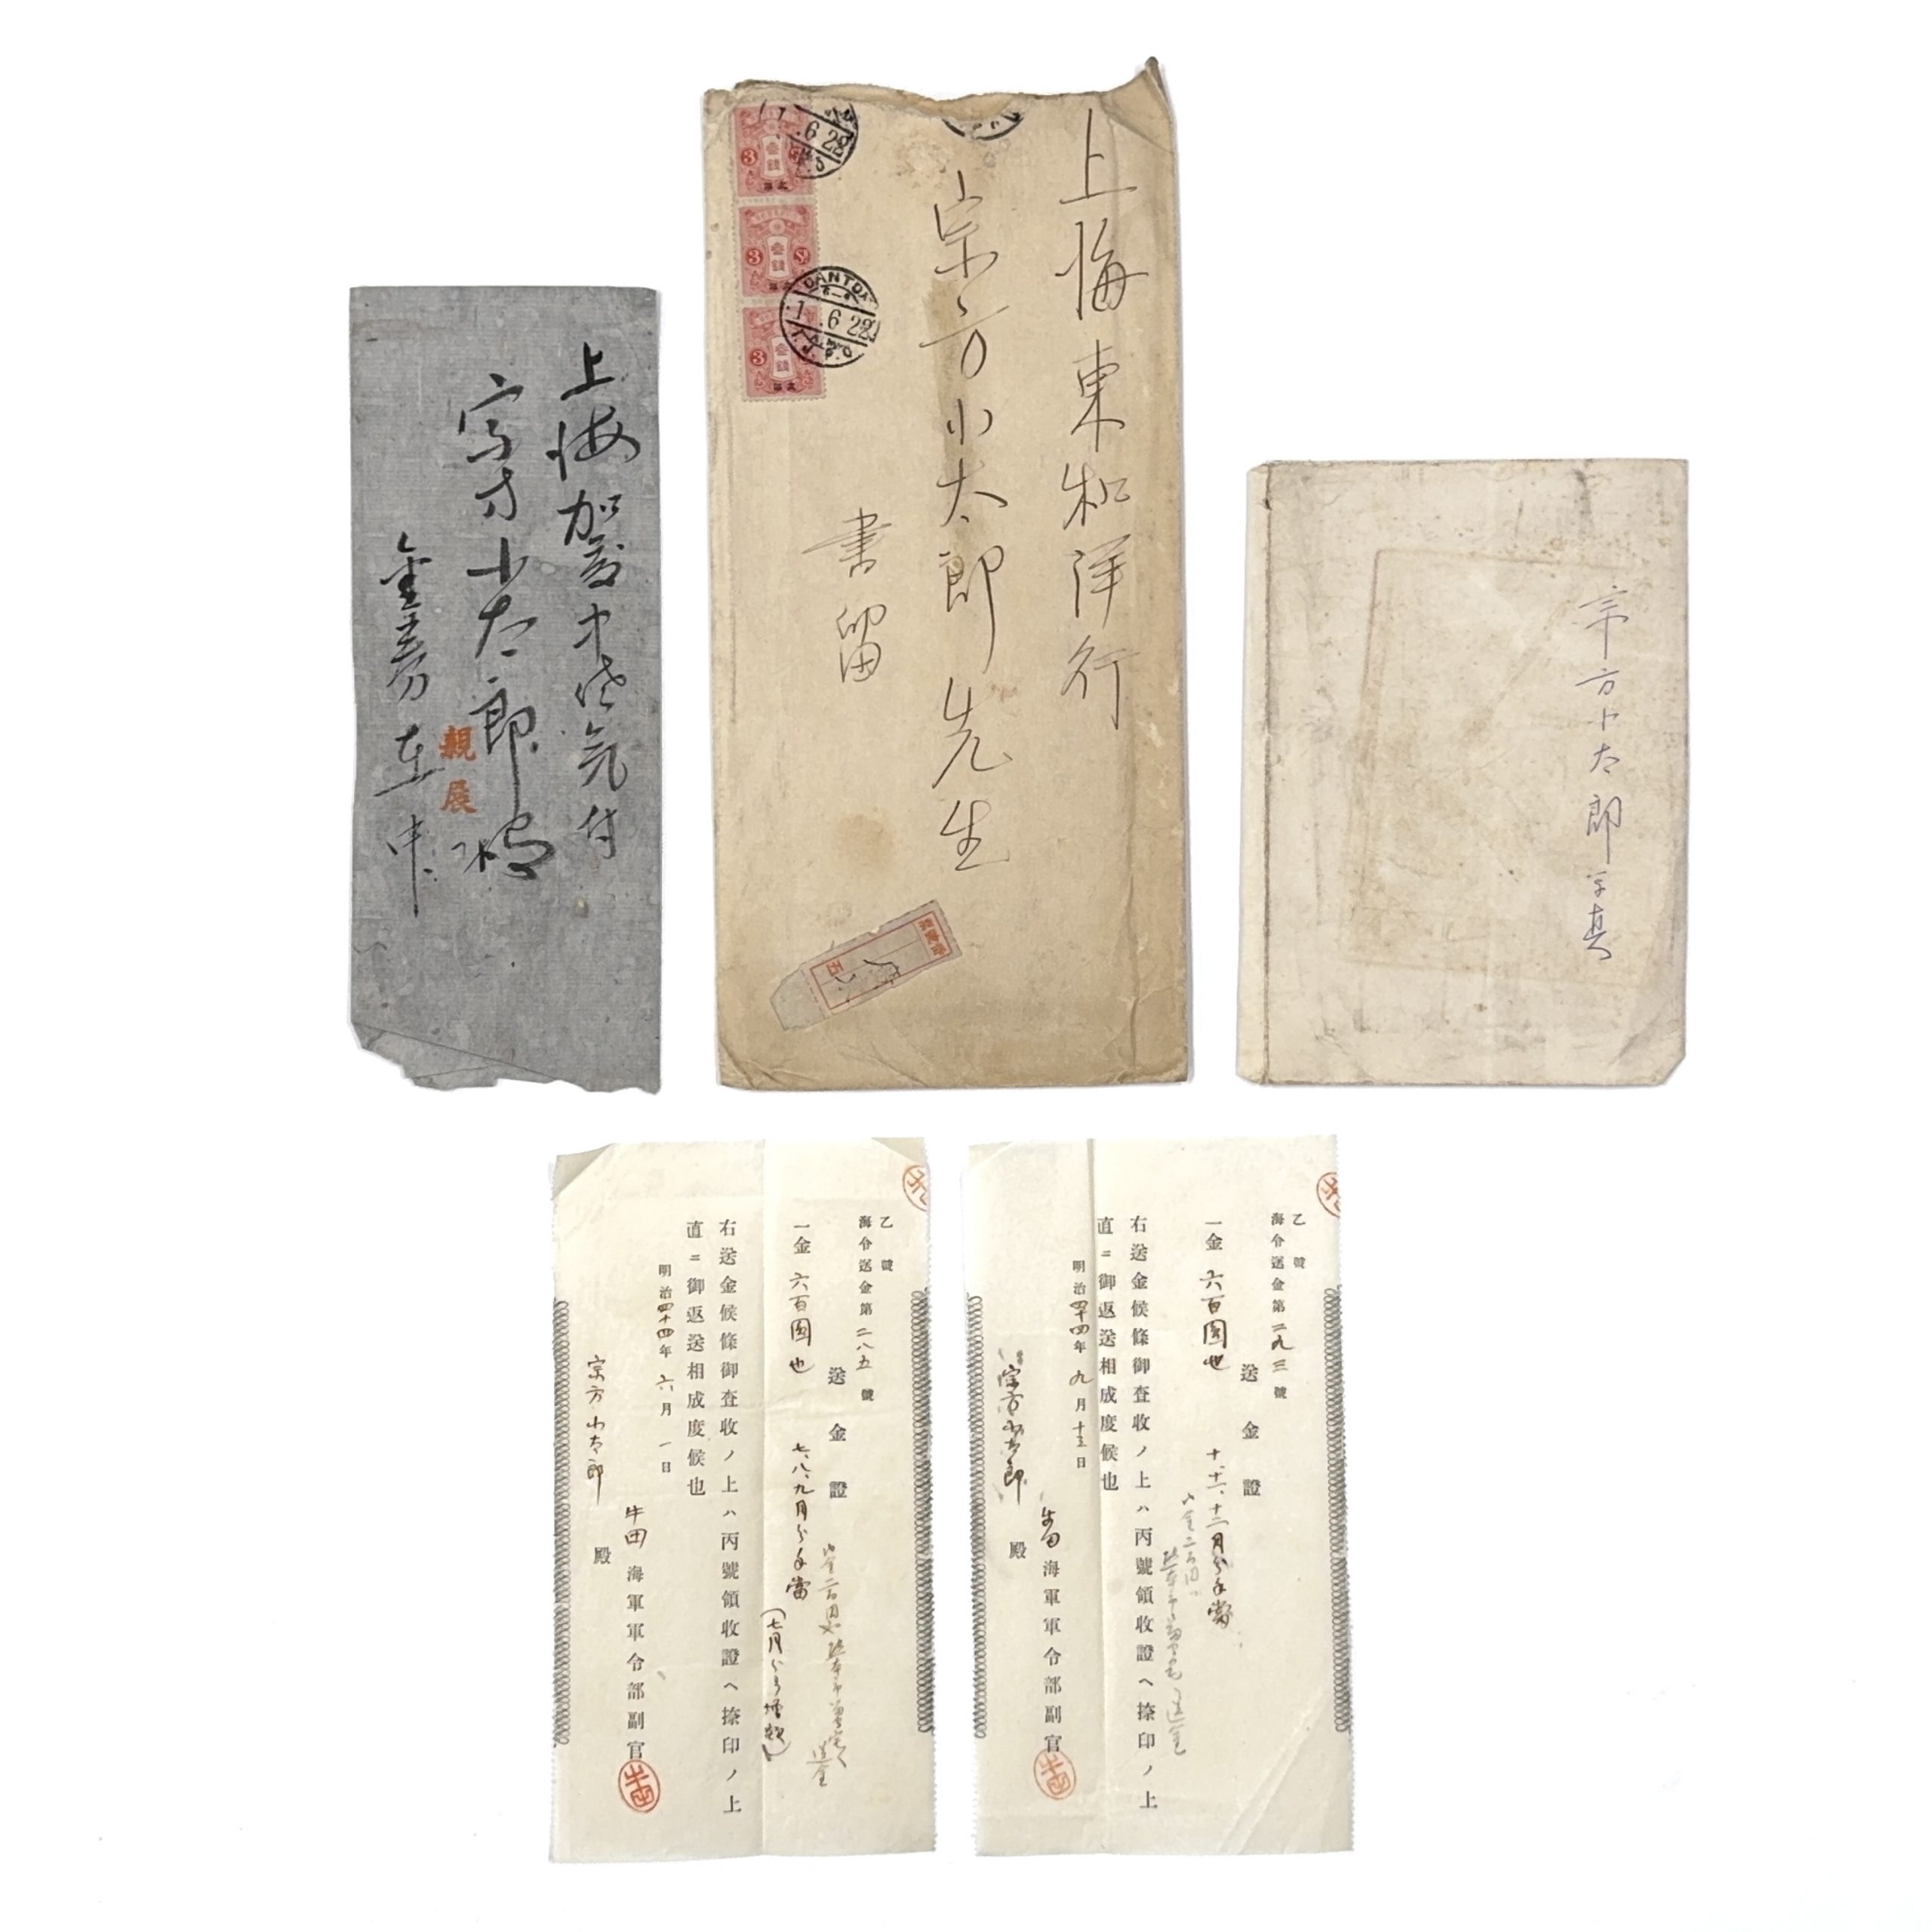 上海
宗方小太郎
親展
上海東和洋行
宗方小太郎先生
書留
3
3
3
DANTO
.6 28
1 .6 28
宗方小太郎写真
乙號
海令送金第二八五號
送金證
一金六百圓也
七、八、九月分手當
(七月分ヨリ増額)
右送金候條御査收ノ上ハ丙號領收證ヘ捺印ノ上
直ニ御返送相成度候也
明治四十四年六月一日
牛田
海軍軍令部副官
宗方小太郎殿
乙號
海令送金第二九三號
送金證
一金六百圓也
十、十一、十二月分手當
右送金候條御査收ノ上ハ丙號領收證ヘ捺印ノ上
直ニ御返送相成度候也
明治四十四年九月十三日
牛田
海軍軍令部副官
宗方小太郎殿